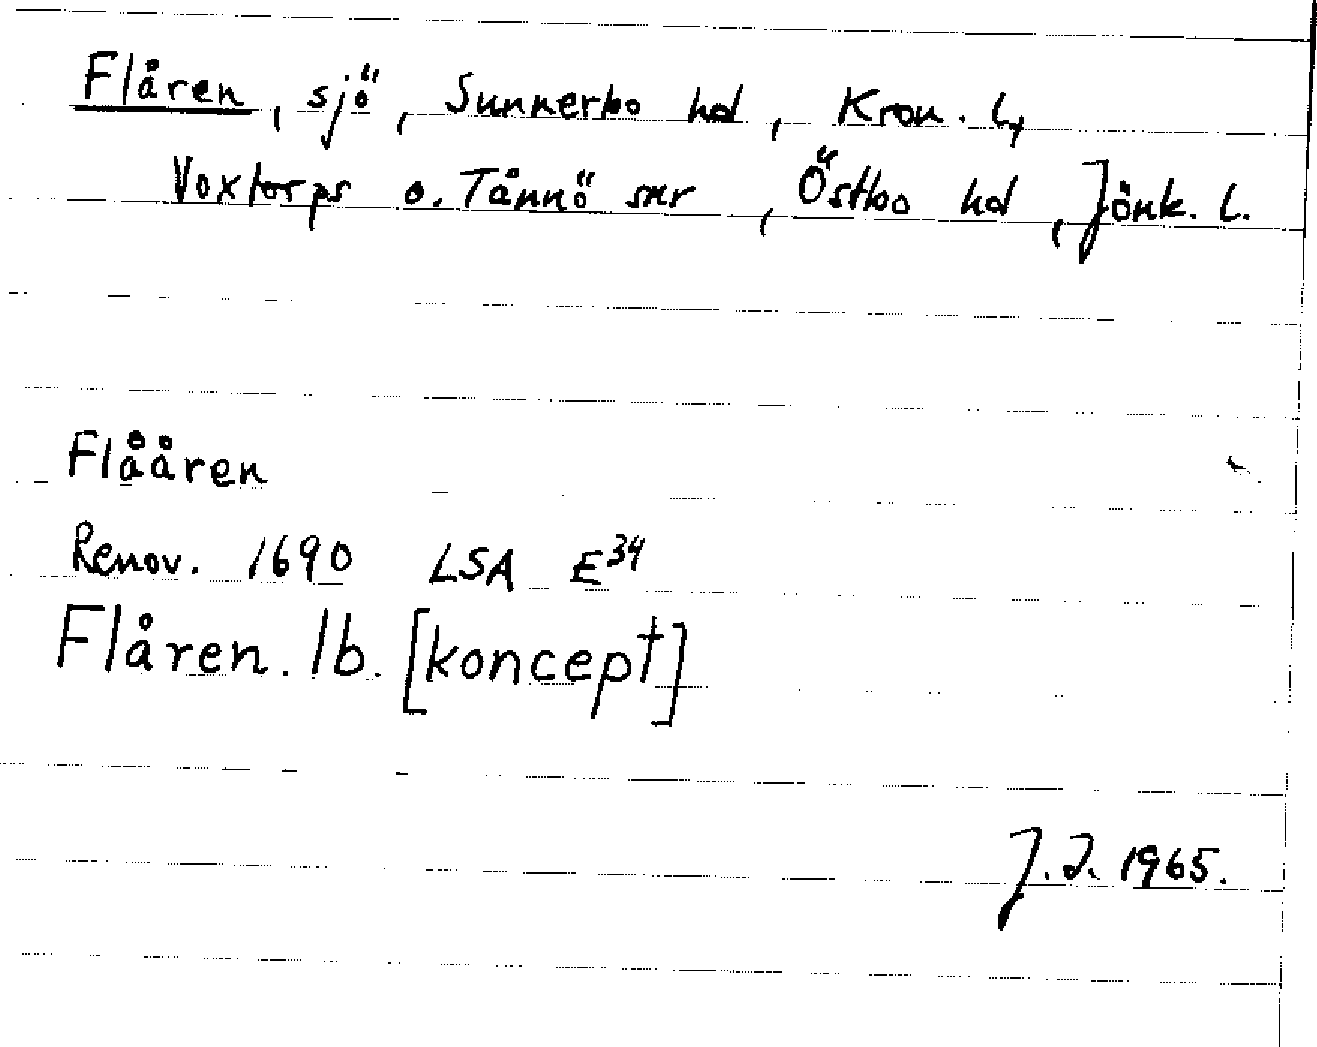 Flåren, sjö, Sunnerbo hd, Kron. l,
Voxtorps o. Tånnö snr, Östbo hd, Jönk. l.
Flååren
Renov. 1690 LSA E34
Flåren. Ib. [koncept]
J.I. 1965.